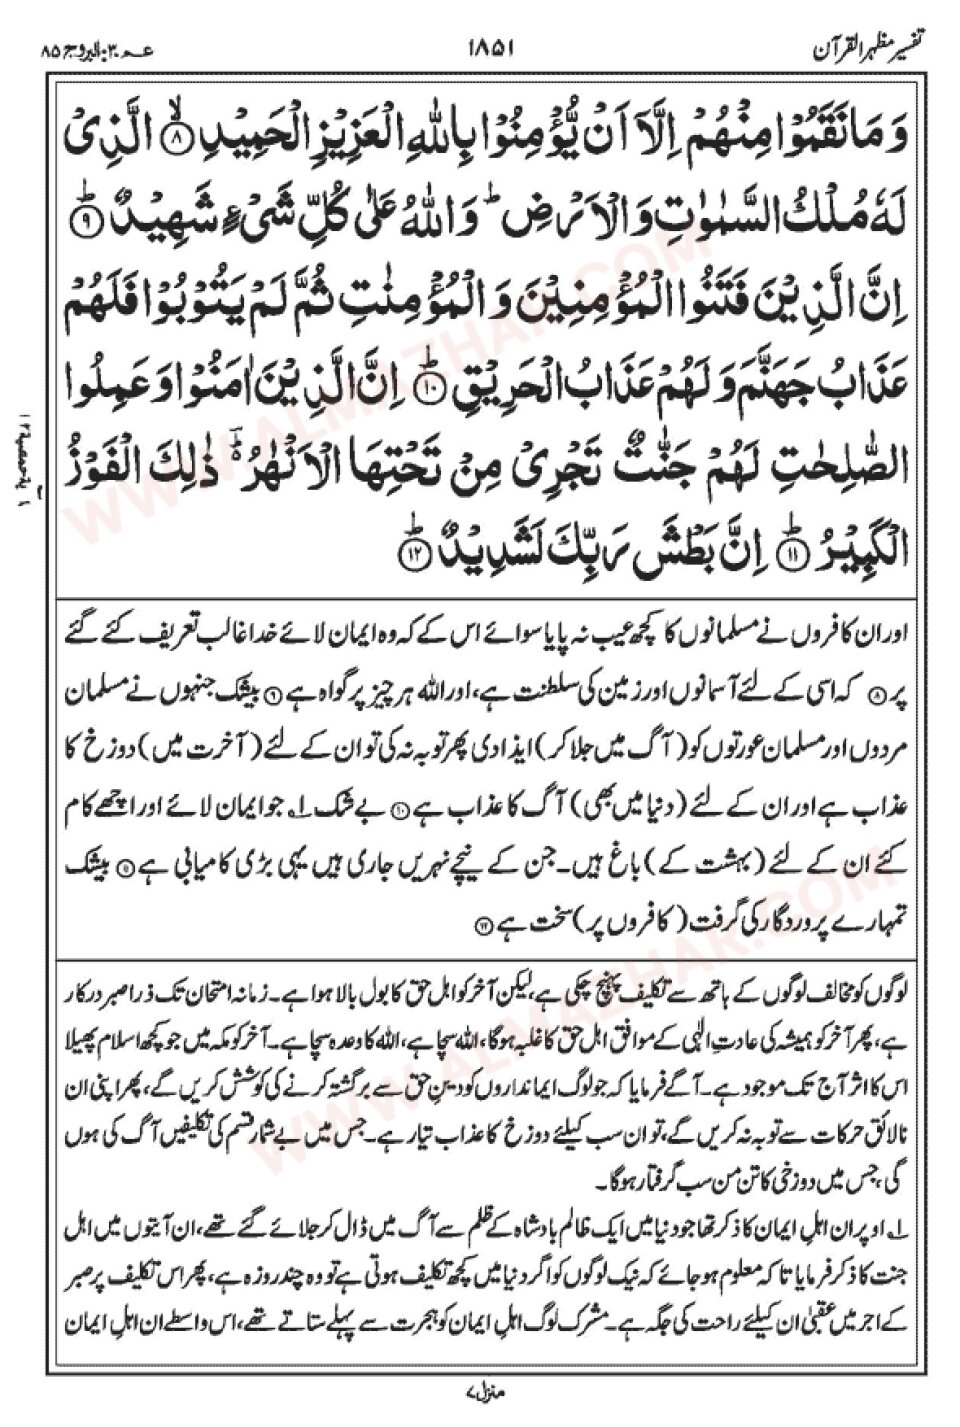 تفسیر مظہر القرآن
۱۸۵۱
عم ۳۰: البروج ۸۵
وَمَا نَقَمُوْا مِنْهُمْ اِلَّاۤ اَنْ يُّؤْمِنُوْا بِاللّٰهِ الْعَزِيْزِ الْحَمِيْدِ ۙ﴿۸﴾ الَّذِيْ
لَهٗ مُلْكُ السَّمٰوٰتِ وَالْاَرْضِ ؕ وَاللّٰهُ عَلٰى كُلِّ شَيْءٍ شَهِيْدٌ ؕ﴿۹﴾
اِنَّ الَّذِيْنَ فَتَنُوا الْمُؤْمِنِيْنَ وَالْمُؤْمِنٰتِ ثُمَّ لَمْ يَتُوْبُوْا فَلَهُمْ
عَذَابُ جَهَنَّمَ وَلَهُمْ عَذَابُ الْحَرِيْقِ ؕ﴿۱۰﴾ اِنَّ الَّذِيْنَ اٰمَنُوْا وَعَمِلُوا
الصّٰلِحٰتِ لَهُمْ جَنّٰتٌ تَجْرِيْ مِنْ تَحْتِهَا الْاَنْهٰرُ ؕ ذٰلِكَ الْفَوْزُ
الْكَبِيْرُ ؕ﴿۱۱﴾ اِنَّ بَطْشَ رَبِّكَ لَشَدِيْدٌ ؕ﴿۱۲﴾
اور ان کافروں نے مسلمانوں کا کچھ عیب نہ پایا سوائے اس کے کہ وہ ایمان لائے خدا غالب تعریف کئے گئے
پر ﴿۸﴾ کہ اسی کے لئے آسمانوں اور زمین کی سلطنت ہے، اور اللہ ہر چیز پر گواہ ہے ﴿۹﴾ بیشک جنہوں نے مسلمان
مردوں اور مسلمان عورتوں کو (آگ میں جلا کر) ایذا دی پھر توبہ نہ کی تو ان کے لئے (آخرت میں) دوزخ کا
عذاب ہے اور ان کے لئے (دنیا میں بھی) آگ کا عذاب ہے ﴿۱۰﴾ بے شک ۱؎ جو ایمان لائے اور اچھے کام
کئے ان کے لئے (بہشت کے) باغ ہیں۔ جن کے نیچے نہریں جاری ہیں یہی بڑی کامیابی ہے ﴿۱۱﴾ بیشک
تمہارے پروردگار کی گرفت (کافروں پر) سخت ہے ﴿۱۲﴾
لوگوں کو مخالف لوگوں کے ہاتھ سے تکلیف پہنچ چکی ہے، لیکن آخر کو اہل حق کا بول بالا ہوا ہے۔ زمانہ امتحان تک ذرا صبر درکار
ہے، پھر آخر کو ہمیشہ کی عادتِ الٰہی کے موافق اہل حق کا غلبہ ہوگا، اللہ سچا ہے، اللہ کا وعدہ سچا ہے۔ آخر کو مکہ میں جو کچھ اسلام پھیلا
اس کا اثر آج تک موجود ہے۔ آگے فرمایا کہ جو لوگ ایمانداروں کو دینِ حق سے برگشتہ کرنے کی کوشش کریں گے، پھر اپنی ان
نالائق حرکات سے توبہ نہ کریں گے، تو ان سب کیلئے دوزخ کا عذاب تیار ہے۔ جس میں بے شمار قسم کی تکلیفیں آگ کی ہوں
گی، جس میں دوزخی کا تن من سب گرفتار ہوگا۔
۱؎ اوپر ان اہلِ ایمان کا ذکر تھا جو دنیا میں ایک ظالم بادشاہ کے ظلم سے آگ میں ڈال کر جلائے گئے تھے، ان آیتوں میں اہل
جنت کا ذکر فرمایا تا کہ معلوم ہو جائے کہ نیک لوگوں کو اگر دنیا میں کچھ تکلیف ہوتی ہے تو وہ چند روزہ ہے، پھر اس تکلیف پر صبر
کے اجر میں عقبیٰ ان کیلئے راحت کی جگہ ہے۔ مشرک لوگ اہلِ ایمان کو ہجرت سے پہلے ستاتے تھے، اس واسطے ان اہلِ ایمان
منزل ۷
WWW.ALMAZHAR.COM
WWW.ALMAZHAR.COM